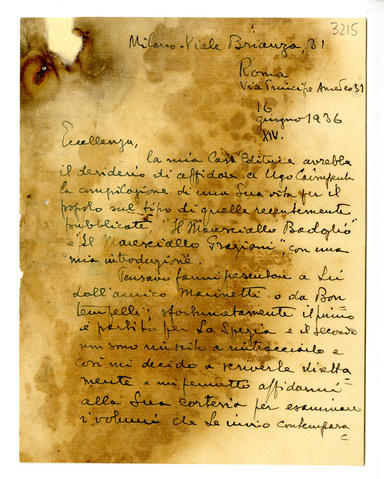 3215
Milano - Viale Brianza, 31
Roma
Via Principe Amedeo 31
16
giugno 1936
XIV.
Eccellenza,
la mia Casa Editrice avrebbe
il desiderio di affidare a Ugo
la compilazione di una Sua vita per il
popolo sul tipo di quelle recentemente
pubblicate "Il Maresciallo Badoglio"
e "Il Maresciallo Graziani" con una
mia introduzione.
Pensavo farmi presentare a Lei
dall'amico Marinetti o da Bon
tempelli; sfortunatamente il primo
è partito per La Spezia e il secondo
non sono riuscito a rintracciarlo e
così mi decido a scriverle diretta
mente e mi permetto affidarmi
alla Sua cortesia per esaminare
i volumi che Le invio contempora